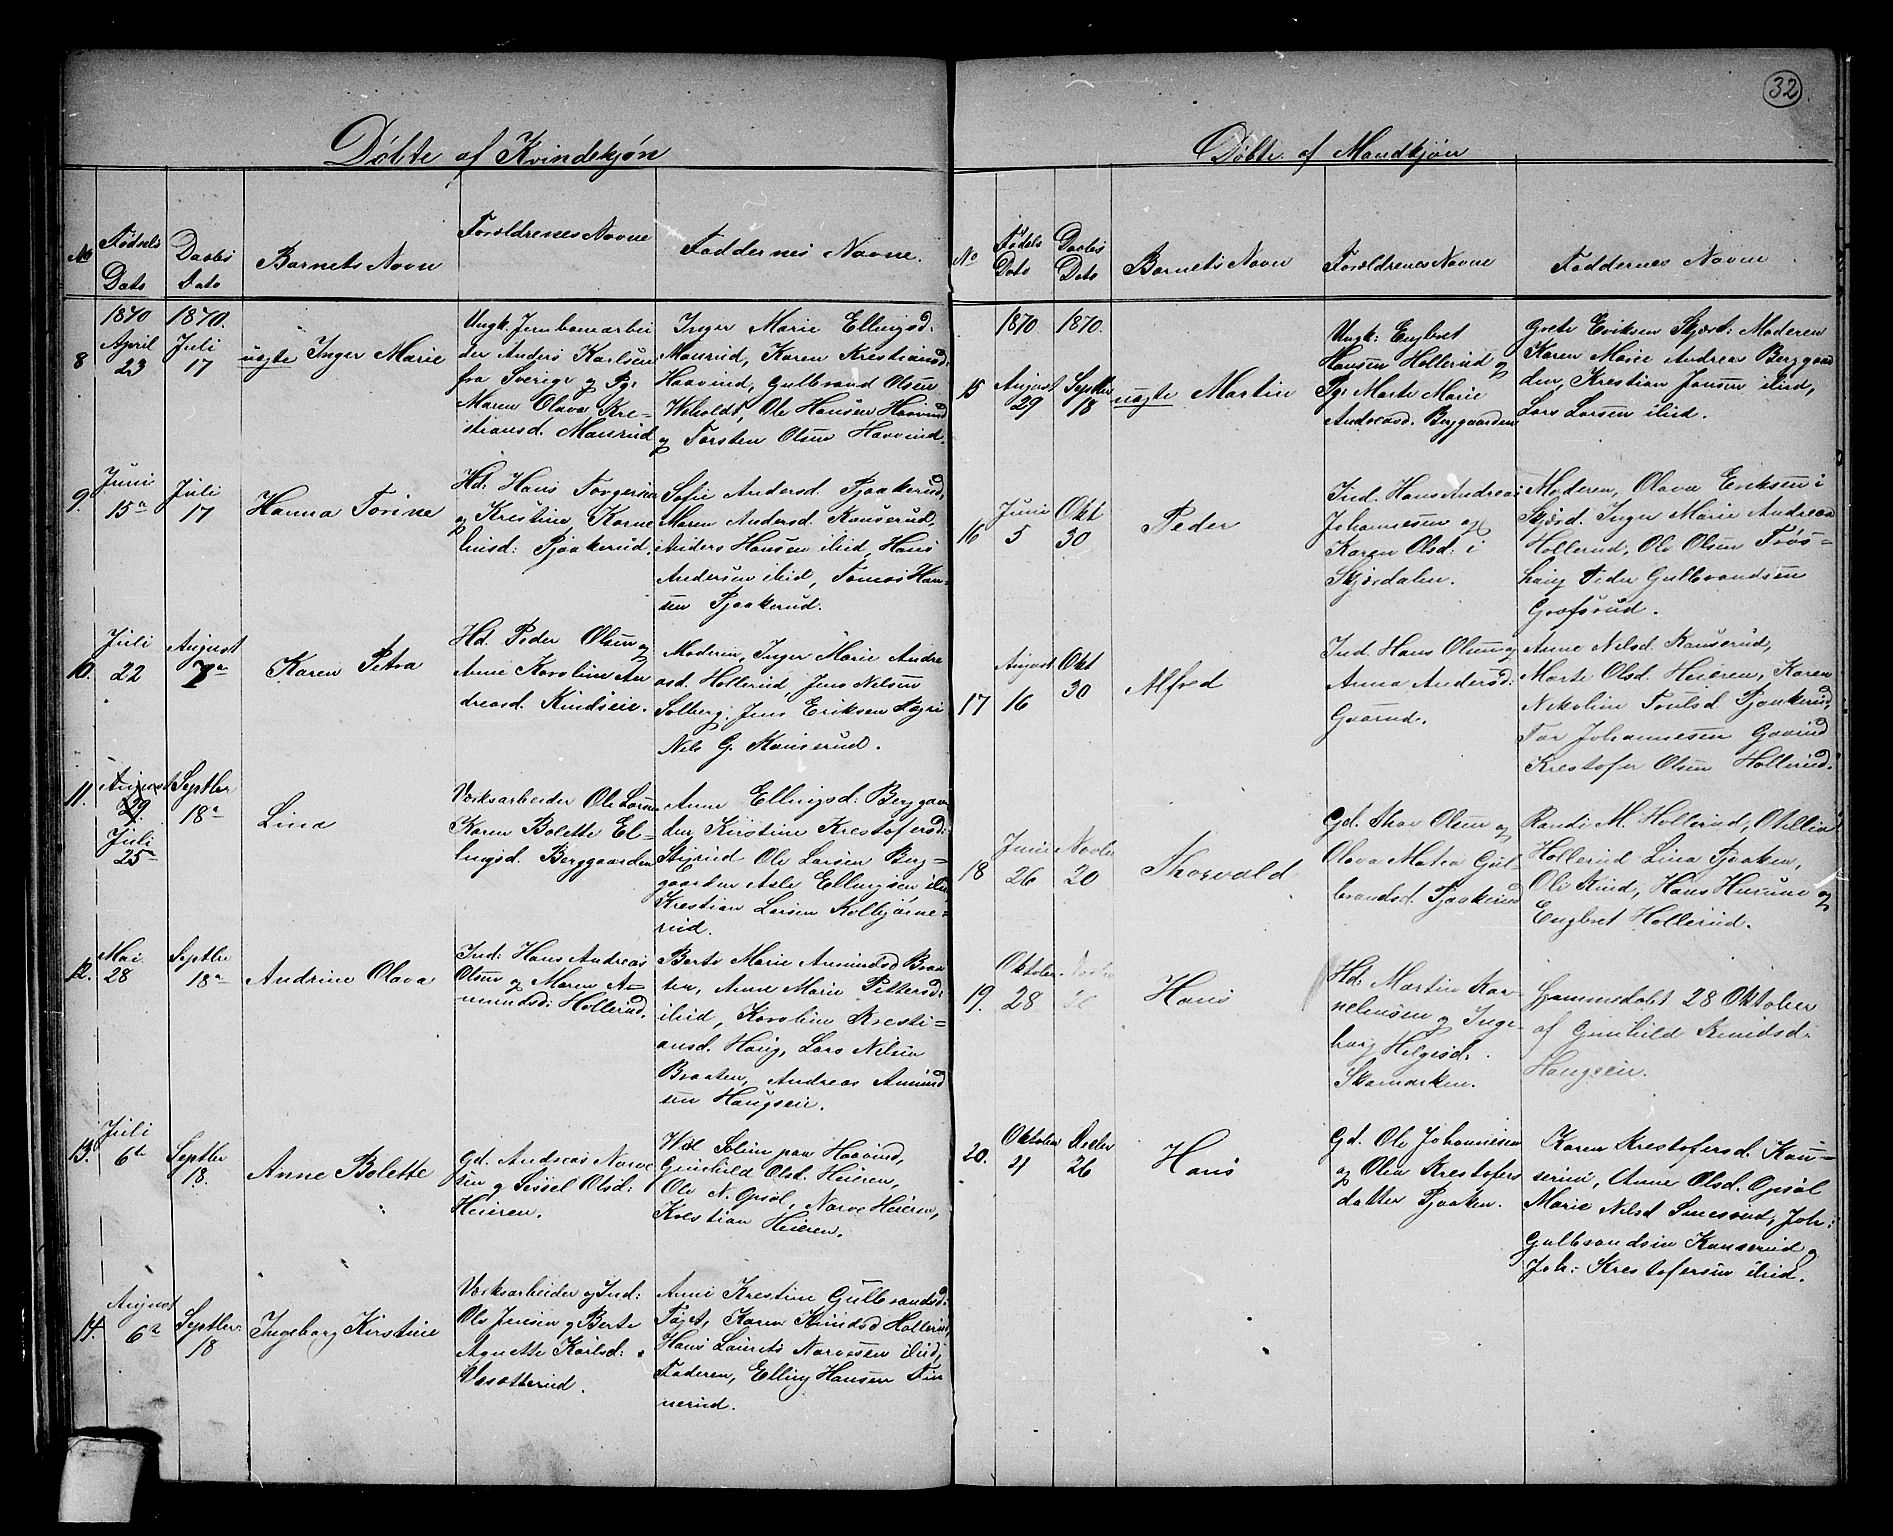 32
Døbte af Kvindekjøn
No
Fødsels
Dato
Daabs
Dato
Barnets Navn
Forældrenes Navne
Faddernes Navne.
8
1870
April
23
1870.
Juli
17
uægte Inger Marie
Ungk. Jernbanearbei
der Anders Karlsen
fra Sverige og Pg.
Maren Olava Kre-
stiansd. Maurud
Inger Marie Ellingsd:
Maurud, Karen Krestiansd:
Haavind, Gulbrand Olsen
Weholdt, Ole Hansen Haavind
og Torsten Olsen Haavind.
9.
Juni
15a
Juli
17
Hanna Torine
Hd: Hans Torgersen
og Krestine Karne
liusd: Pjaakerud
Sofie Andersd. Pjaakerud,
Maren Andersd. Kauserud,
Anders Hansen ibid, Hans
Andersen ibid, Tomas Han-
sen Pjaakerud.
10.
Juli
22
August
7a
Karen Petra
Hd. Peder Olsen og
Anne Karoline An
dreasd. Kindseie.
Moderen, Inger Marie Andre
asd. Hollerud Jens Nilsen
Solberg, Jens Eriksen Ageri
Nils G. Kauserud.
11.
August
29.
Juli
25
Septbr
18a
Lina
Værksarbeider Ole Larsen
Karen Bolette El-
lingsd. Berggaarden
Anne Ellingsd: Berggaar
den, Kirstine Krestofersd:
Stigrud Ole Larsen Berg-
gaarden Asle Ellingsen ibid,
Krestian Larsen Kolbjørne-
rud.
12.
Mai
28
Septbr
18a
Andrine Olava
Ind: Hans Andreas
Olsen og Maren A-
mundsd: Hollerud.
Berte Marie Amundsd Braa
ten, Anne Marie Pettersd:
ibid, Karoline Kresti-
ansd. Haug, Lars Nilsen
Braaten, Andreas Amund
sen Haugseie.
13.
Juli
6t
Septbr
18.
Anne Bolette
Gd. Andreas Narve
sen og Sissel Olsd:
Heieren.
Hd. Solum paa Haavind,
Gunhild Olsd. Heieren,
Ole N. Opsøl, Narve Heieren,
Krestian Heieren.
14.
August
6a
Septbr
18
Ingeborg Kirstine
Værksarbeider og Ind:
Ole Jensen og Berte
Agnette Karlsd:
Vasætterud.
Anne Krestine Gulbrandsd:
Tajet, Karen Knudsd Hollerud,
Hans Laurits Narvesen ibid,
Faderen, Elling Hansen Fin
nerud.
Døbte af Mandkjøn
No
Fødsels
Dato
Daabs
Dato
Barnets Navn
Forældrenes Navne
Faddernes Navne
15
1870
August
29
1870.
Septbr
18
uægte Martin
Ungk: Engbret
Hansen Hollerud og
Pg: Marte Marie
Andreasd. Berggaarden
Grete Eriksen Skjærd: Moderen
Karen Marie Andreas Berggaar
den, Krestian Jansen ibid,
Lars Larsen ibid.
16
Juni
5
Okt
30
Peder
Ind. Hans Andreas
Johannesen og
Karen Olsd: i
Skjærdalen.
Moderen, Olava Eriksen i
Skjærd. Inger Marie Andreas
Hollerud, Ole Olsen Frøs-
haug Peder Gulbrandsen
Grøfsrud.
17
August
16
Okt
30
Alfred
Ind. Hans Olsen og
Anna Andersd:
Gaarud.
Anne Nilsd. Kauserud,
Marte Olsd. Heieren, Karen
Nikoline Poulsd Pjaakerud,
Tor Johannesen Gaarud
Krestofer Olsen Hollerud.
18
Juni
26
Novbr
20
Thorvald
Gd. Thor Olsen og
Olava Matea Gul-
brandsd. Pjaakerud
Randi M. Hollerud, Otillia
Hollerud Lina Pjaaken,
Ole Kind, Hans Hurum og
Engbret Hollerud.
19.
Oktober
28
Novbr
20
Hans
Hd: Martin Kar-
neliusen og Inge-
borg Helgesd:
Skamarken.
Hjemmedøbt 28 Oktober
af Gunhild Knudsd:
Haugseie.
20.
Oktober
21
Decbr
26
Hans
Gd. Ole Johannesen
og Olea Krestofers
datter Pjaaken.
Karen Krestofersd. Kau-
serud, Anne Olsd. Opsøl
Marie Nilsd Smesrud, Joh:
Gulbrandsen Kauserud og
Joh: Krestofersen ibid.